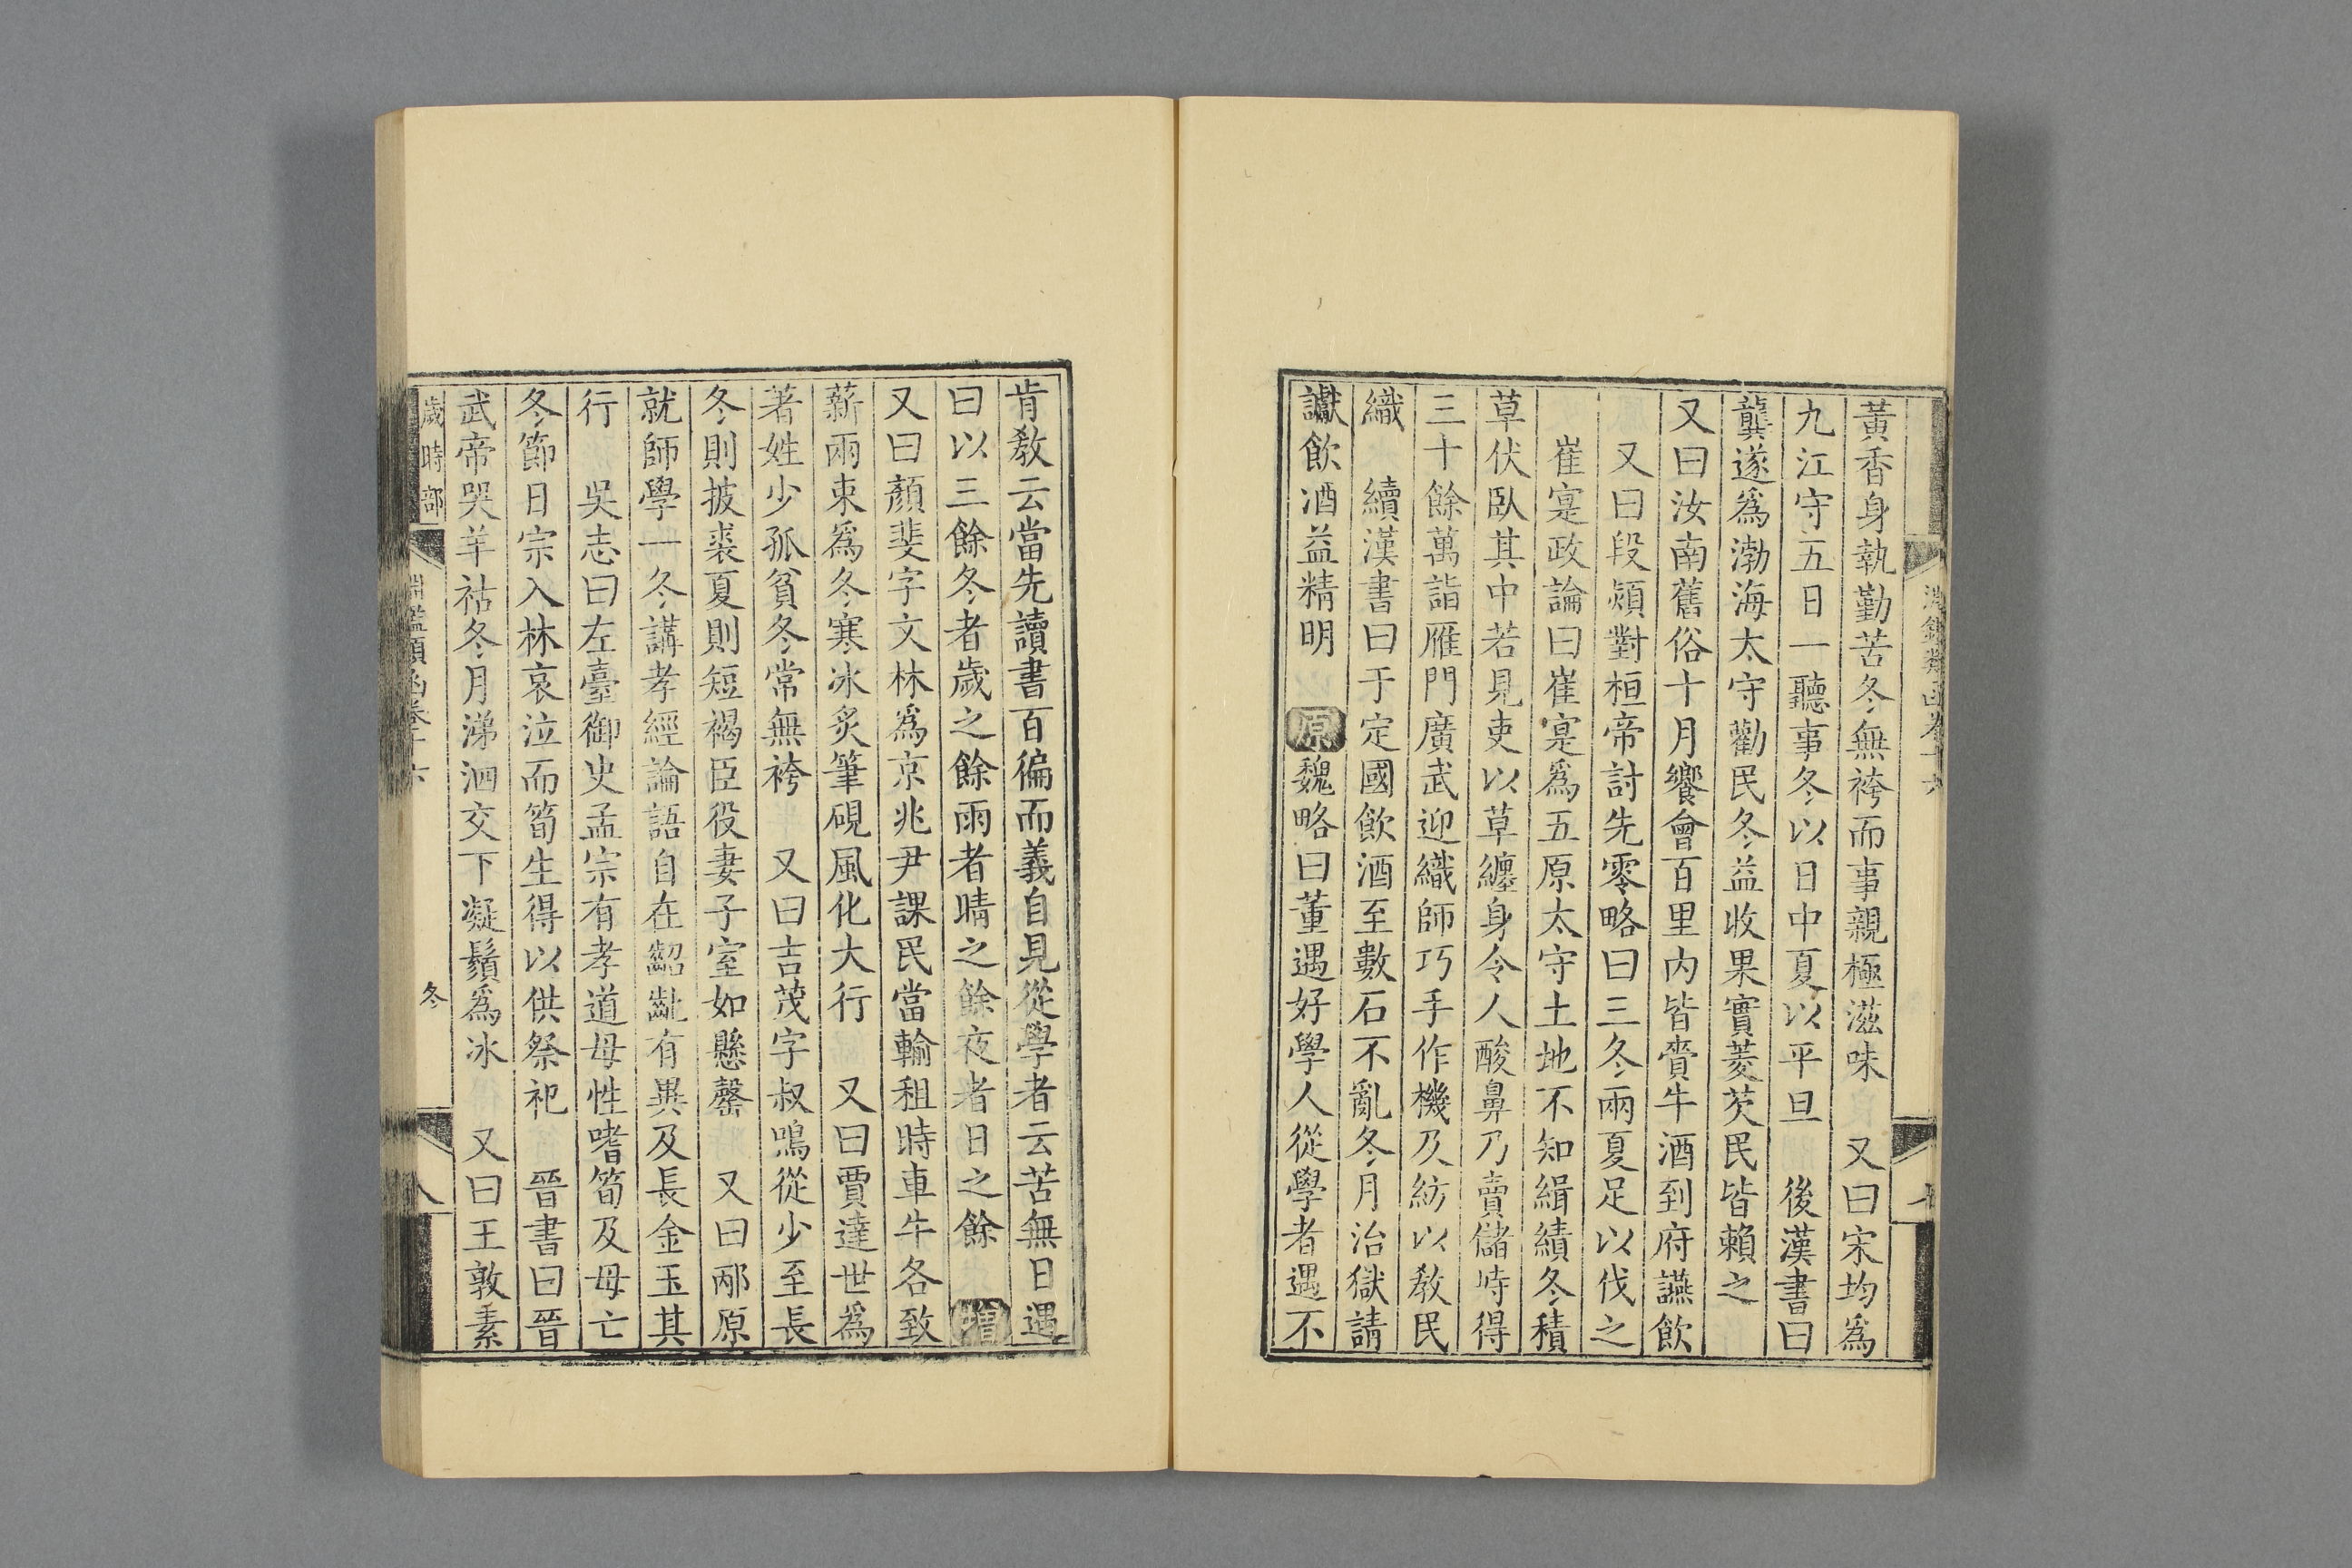 黃香身執勤苦冬無袴而事親極滋味　又曰宋均爲
九江守五日一聽事冬以日中夏以平旦　後漢書曰
龔遂爲渤海太守勸民冬益收果實菱芡民皆賴之
又曰汝南舊俗十月饗會百里內皆賫牛酒到府讌飲
又曰段熲對桓帝討先零略曰三冬兩夏足以伐之
崔寔政論曰崔寔爲五原太守土地不知緝績冬積
草伏臥其中若見吏以草纏身令人酸鼻乃賣儲峙得
三十餘萬詣雁門廣武迎織師巧手作機及紡以教民
織　續漢書曰于定國飲酒至數石不亂冬月治獄請
讞飲酒益精明　原魏略曰董遇好學人從學者遇不
肯教云當先讀書百徧而義自見從學者云苦無日遇
曰以三餘冬者歲之餘雨者晴之餘夜者日之餘　增
又曰顏斐字文林爲京兆尹課民當輸租時車牛各致
薪兩束爲冬寒冰炙筆硯風化大行　又曰賈逵世爲
著姓少孤貧冬常無袴　又曰吉茂字叔鳴從少至長
冬則披裘夏則短褐臣役妻子室如懸罄　又曰邴原
就師學一冬講孝經論語自在齠齔有異及長金玉其
行　吳志曰左臺御史孟宗有孝道母性嗜筍及母亡
冬節日宗入林哀泣而筍生得以供祭祀　晉書曰晉
武帝哭羊祜冬月涕泗交下凝鬚爲冰　又曰王敦素
歲時部
淵鑑類函卷十六
冬
八